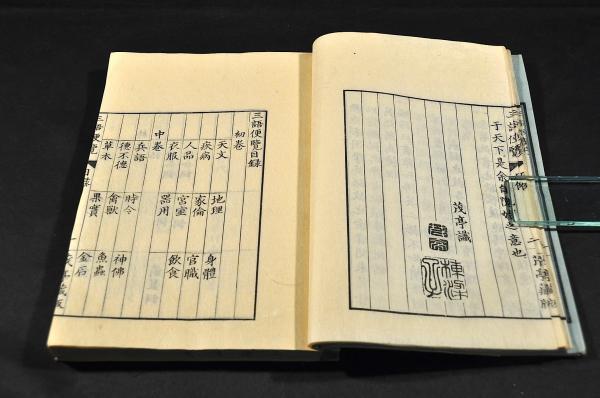 三語便覽
二
于天下是余自
之意也
茂亭識
三語便覽目録
初卷
天文 地理 身體
疾病 家倫 官職
人品 宮室 飲食
衣服 器用
中卷
兵語 時令 神佛
徳不徳 禽獸 魚蟲
草木 果實 金石
三語便覽 目録 一